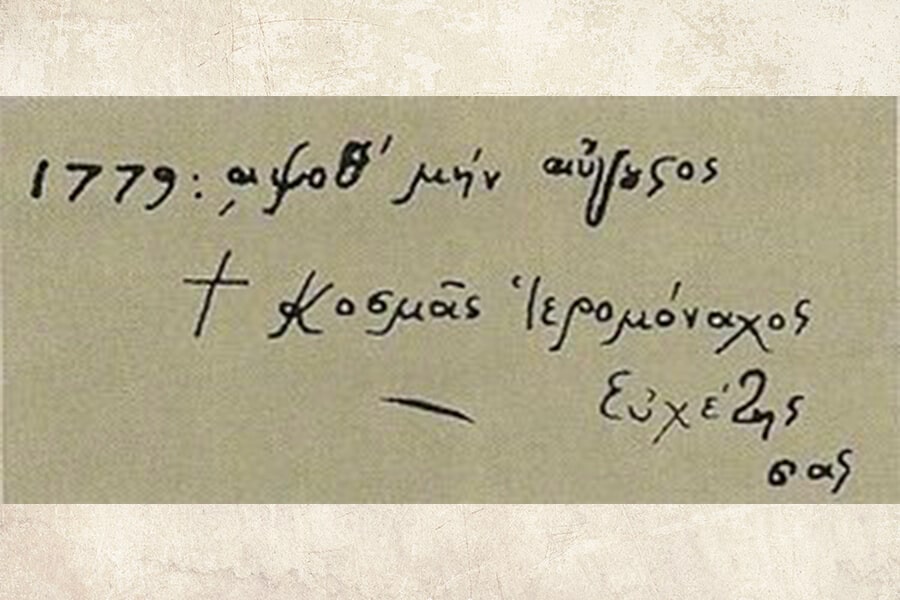 1779: ͵αψοθ′ μήν αὔγȣϛος
† Κοσμᾶς Ἱερομόναχος
Εὐχέτης
σας